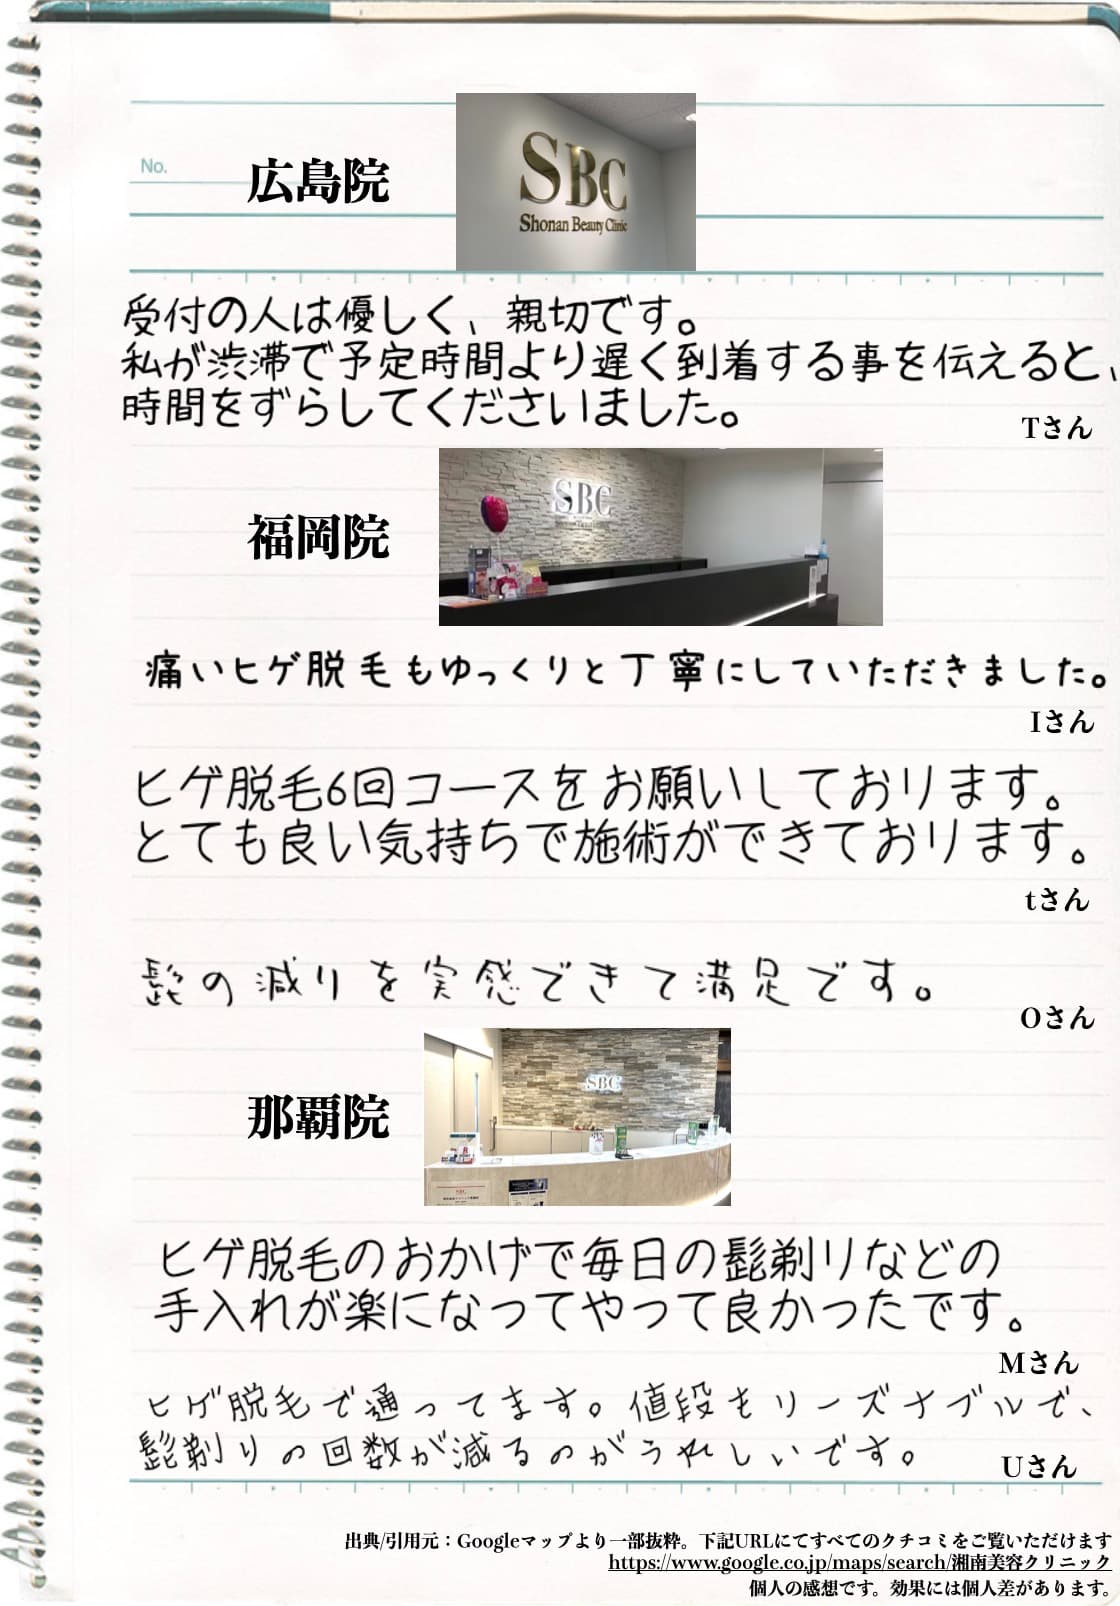 No.
広島院
SBC
Shonan Beauty Clinic
受付の人は優しく、親切です。
私が渋滞で予定時間より遅く到着する事を伝えると、
時間をずらしてくださいました。
Tさん
福岡院
SBC
痛いヒゲ脱毛もゆっくりと丁寧にしていただきました。
Iさん
ヒゲ脱毛6回コースをお願いしております。
とても良い気持ちで施術ができております。
tさん
髭の減りを実感できて満足です。
Oさん
那覇院
SBC
ヒゲ脱毛のおかげで毎日の髭剃りなどの
手入れが楽になってやって良かったです。
Mさん
ヒゲ脱毛で通ってます。値段もリーズナブルで、
髭剃りの回数が減るのがうれしいです。
Uさん
出典/引用元：Googleマップより一部抜粋。下記URLにてすべてのクチコミをご覧いただけます
https://www.google.co.jp/maps/search/湘南美容クリニック
個人の感想です。効果には個人差があります。